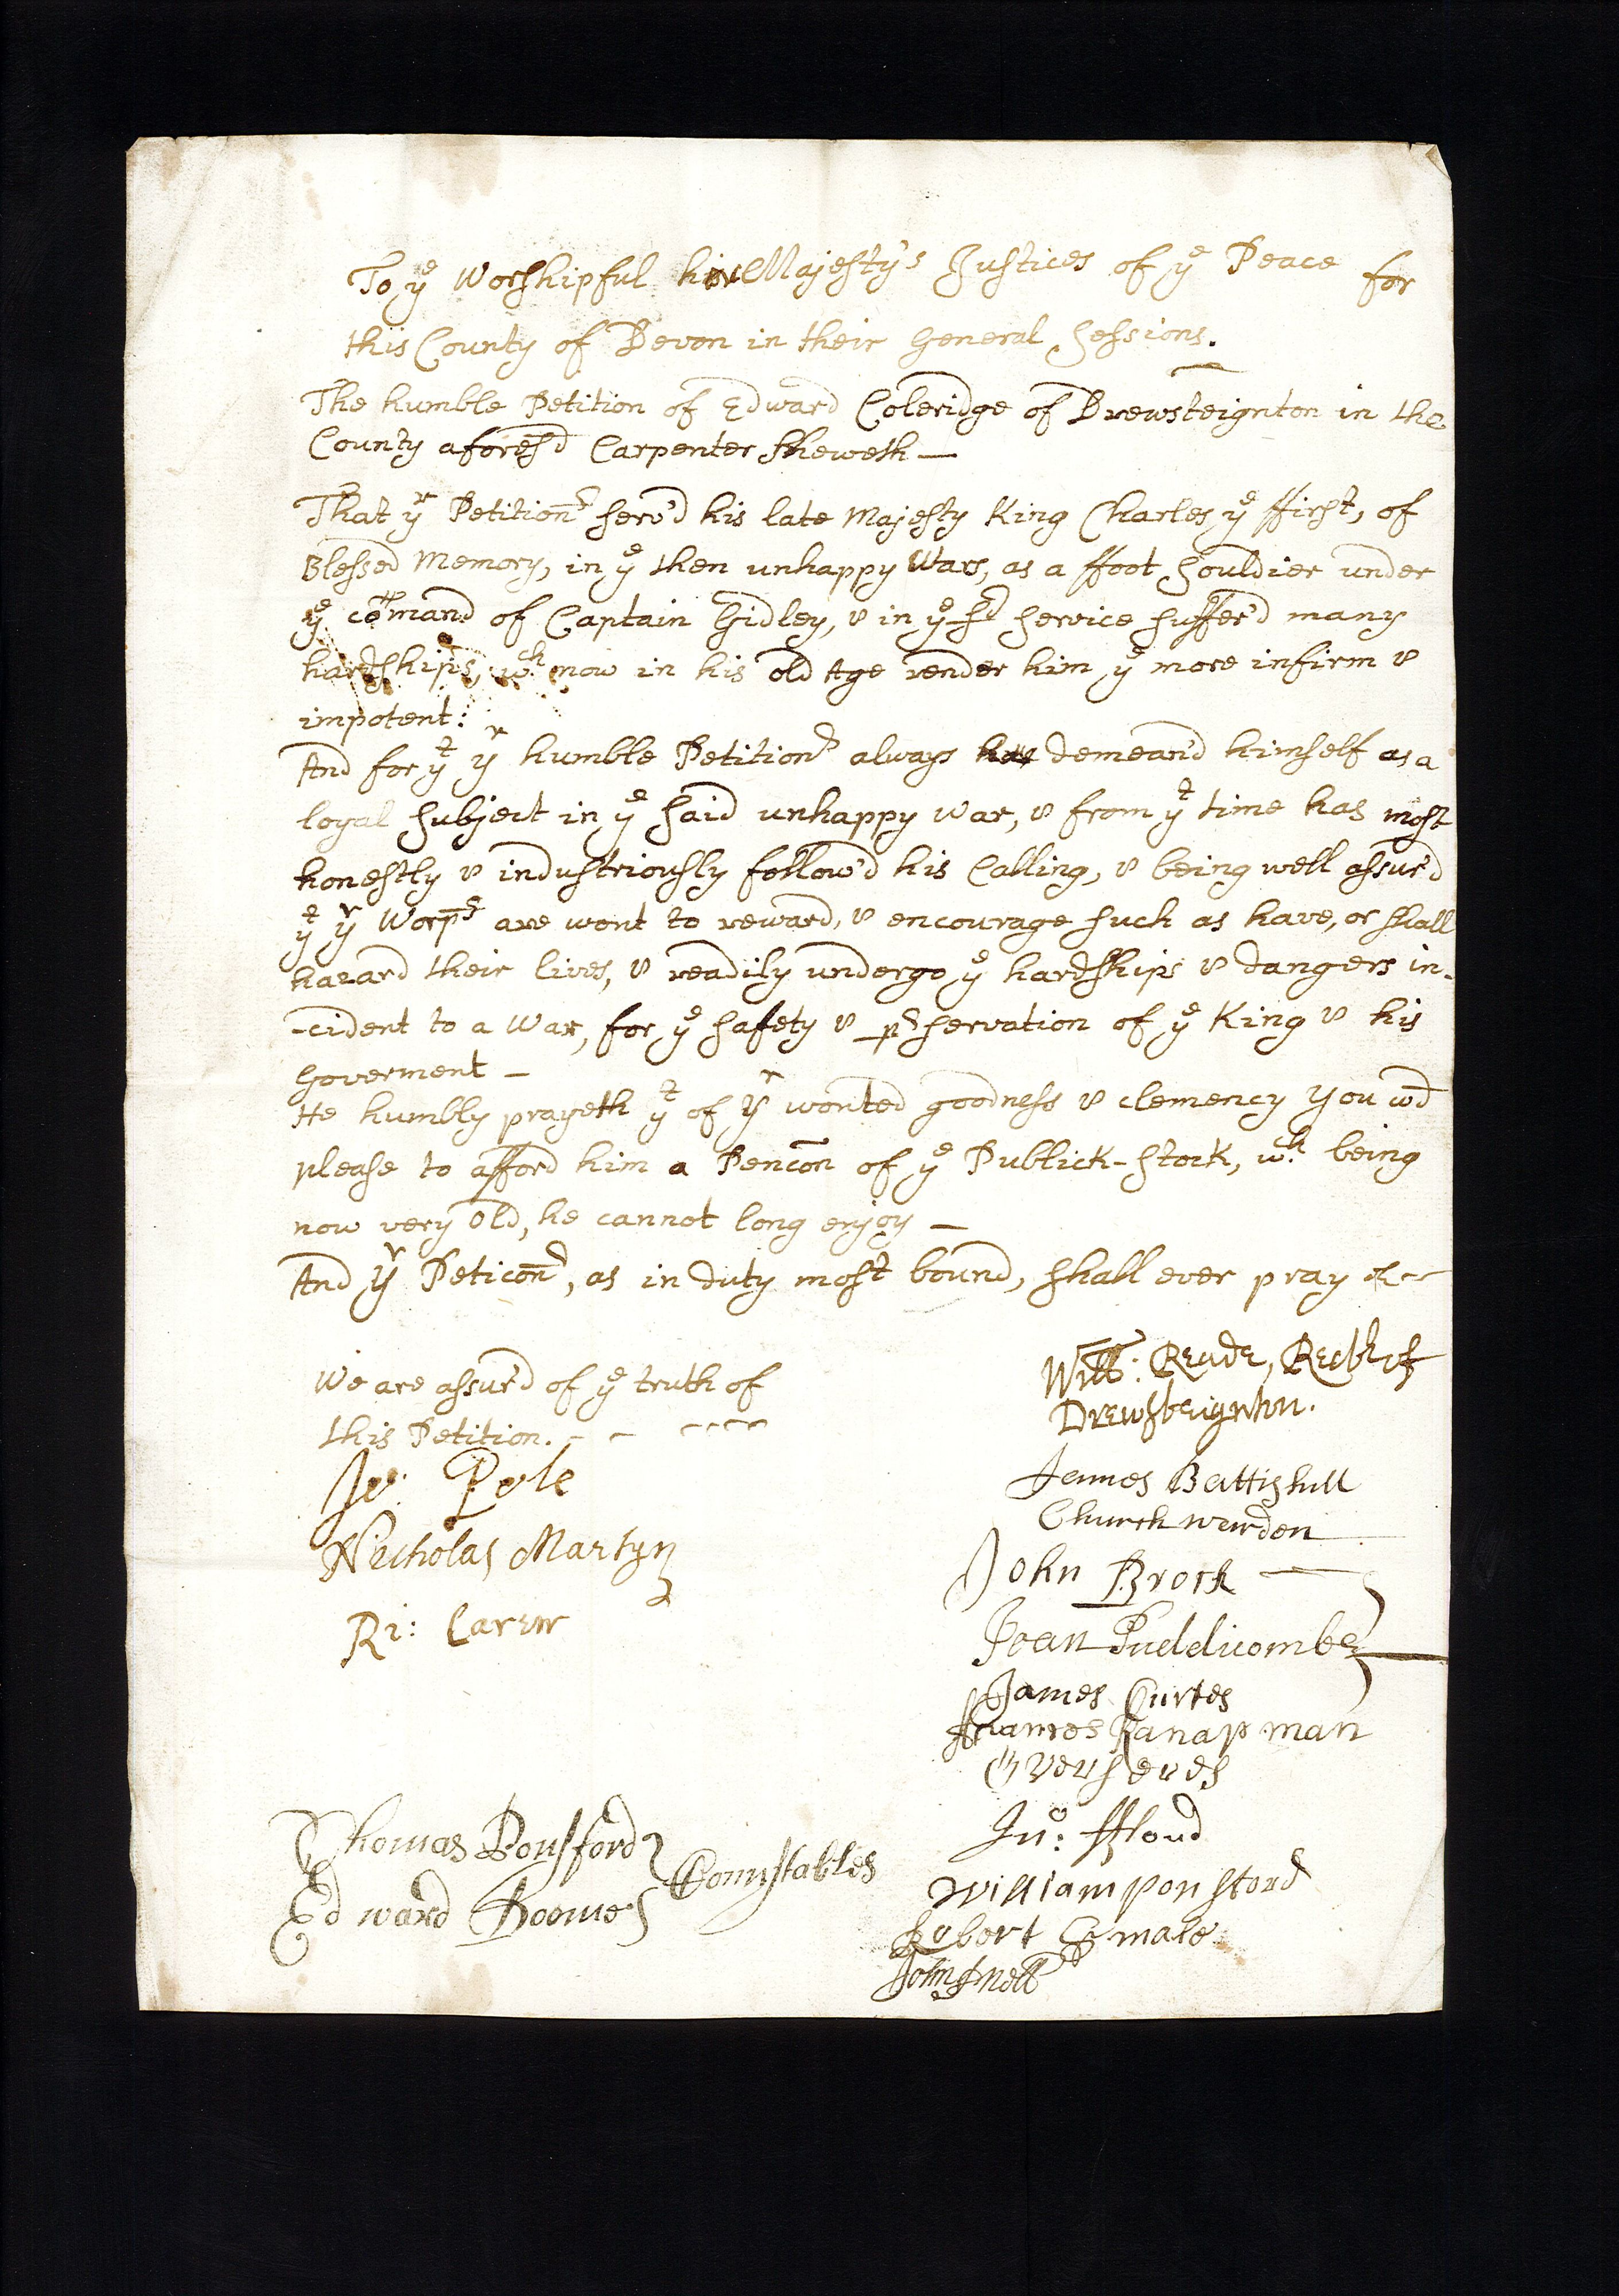 To ye Worshipful his Majesty's Justices of ye Peace for
this County of Devon in their General Sessions.
The humble Petition of Edward Coleridge of Drewsteignton in the
County aforesd Carpenter Sheweth —
That yr Petitionr serv'd his late Majesty King Charles ye ffirst, of
Blessed Memory, in ye then unhappy Wars, as a ffoot Souldier under
ye com̄and of Captain Gidley, & in ye sd Service suffer'd many
hardships, wch now in his old Age render him ye more infirm &
impotent:
And for yt yr humble Petitionr always demean'd himself as a
loyal Subject in ye said unhappy War, & from yt time has most
honestly & industriously follow'd his Calling, & being well assur'd
yt yr Worps are wont to reward, & encourage such as have, or shall
hazard their lives, & readily undergo ye hardships & dangers in-
-cident to a War, for ye safety & prservation of ye King & his
Goverment —
He humbly prayeth yt of yr wonted goodness & clemency you wd
please to afford him a Pencōn of ye Publick-Stock, wch being
now very Old, he cannot long enjoy —
And yr Peticōnr, as in duty most bound, shall ever pray &c
We are assur'd of ye truth of
this Petition.
Jo: Pole
Nicholas Martyn
Ri: Carew
Will: Reade, Rectr of
Drewsteignton.
James Battishill
Church warden
John Brock
Joan Puddicombe
James Curtes
Overseres
Jno: ffloud
William ponsford
Robert
John Snell
Thomas Ponsford
Edward Connstables